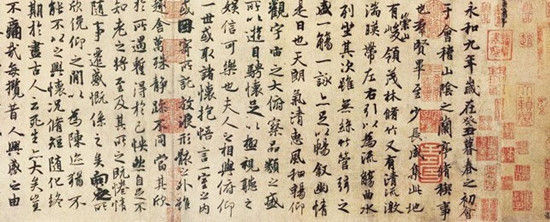 永和九年歲在癸丑暮春之初會
于會稽山陰之蘭亭脩稧事
也群賢畢至少長咸集此地
有崇山峻領茂林脩竹又有清流激
湍暎帶左右引以為流觴曲水
列坐其次雖無絲竹管弦之
盛一觴一詠亦足以暢敘幽情
是日也天朗氣清惠風和暢仰
觀宇宙之大俯察品類之盛
所以遊目騁懷足以極視聽之
娛信可樂也夫人之相與俯仰
一世或取諸懷抱悟言一室之內
或因寄所託放浪形骸之外雖
趣舍萬殊靜躁不同當其欣
於所遇蹔得於己怏然自足不
知老之將至及其所之既惓情
隨事遷感慨係之矣向之所
欣俛仰之間以為陳迹猶不
能不以之興懷況脩短隨化終
期於盡古人云死生亦大矣豈
不痛哉每攬昔人興感之由